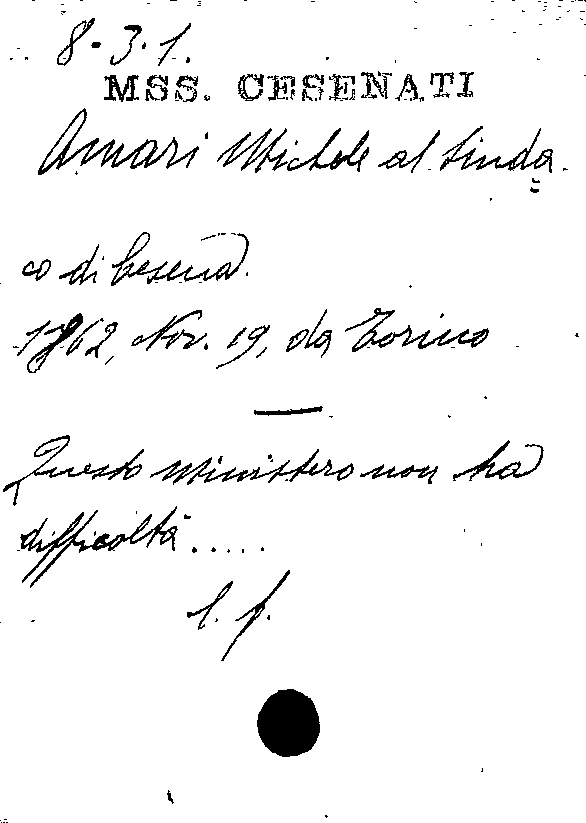 8-3-1.
MSS. CESENATI
Amari Michele al Sinda=
co di Cesena.
1862, Nov. 19, da Torino
Questo Ministero non ha
difficoltà.....
l. f.